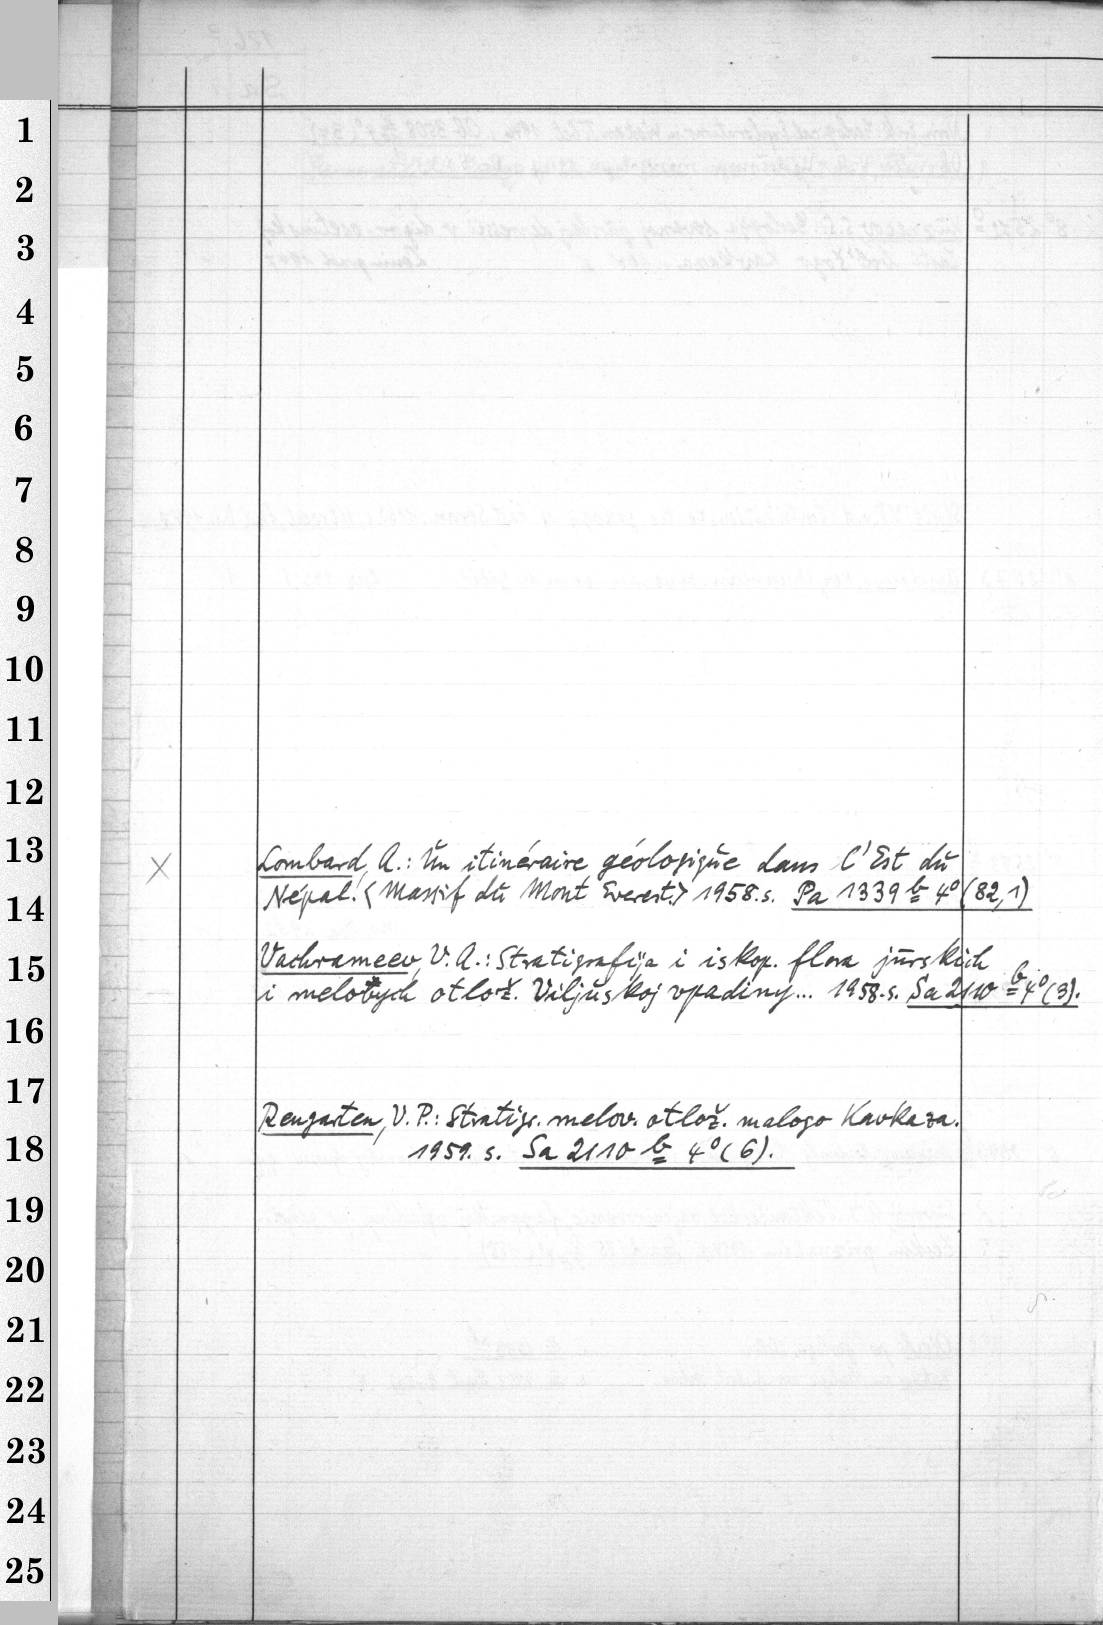 1
2
3
4
5
6
7
8
9
10
11
12
13
14
15
16
17
18
19
20
21
22
23
24
25
X Lombard, A.: Un itinéraire géologique dans l'Est du
Népal. <Massif du Mont Everest.> 1958. s. Pa 1339 b 4° (82,1)
Vachrameev, V. A.: Stratigrafija i iskop. flora jurskich
i melovych otlož. Viljujskoj vpadiny... 1958. s. Sa 2110 b 4° (3).
Rengarten, V. P.: Stratigr. melov. otlož. malogo Kavkaza.
1959. s. Sa 2110 b 4° (6).